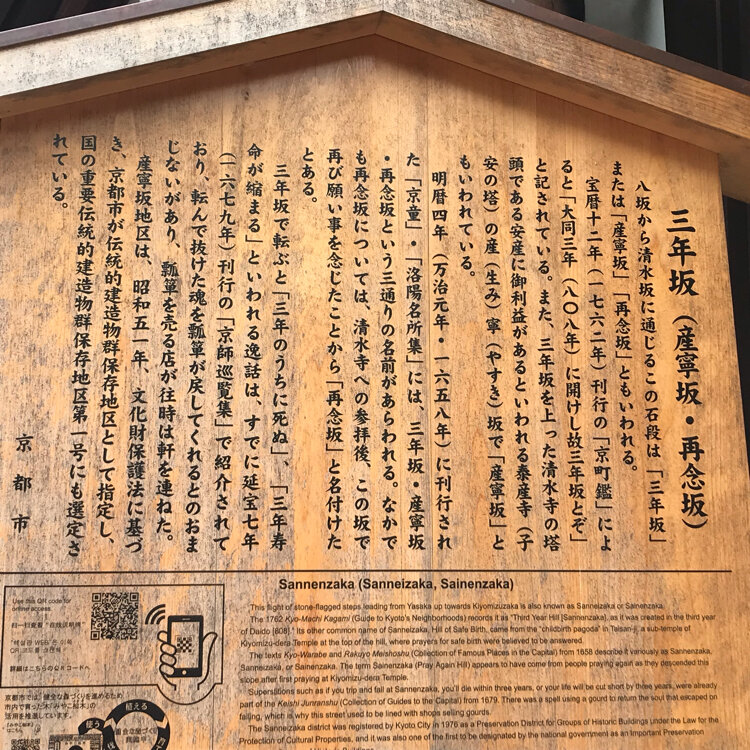 三年坂（産寧坂・再念坂）
八坂から清水坂に通じるこの石段は「三年坂」
または「産寧坂」「再念坂」ともいわれる。
宝暦十二年（一七六二年）刊行の「京町鑑」によ
ると「大同三年（八〇八年）に開けし故三年坂とぞ」
と記されている。また、三年坂を上った清水寺の塔
頭である安産に御利益があるといわれる泰産寺（子
安の塔）の産（生み）寧（やすき）坂で「産寧坂」と
もいわれている。
明暦四年（万治元年・一六五八年）に刊行され
た「京童」・「洛陽名所集」には、三年坂・産寧坂
・再念坂という三通りの名前があらわれる。なかで
も再念坂については、清水寺への参拝後、この坂で
再び願い事を念じたことから「再念坂」と名付けた
とある。
三年坂で転ぶと「三年のうちに死ぬ」、「三年寿
命が縮まる」といわれる逸話は、すでに延宝七年
（一六七九年）刊行の「京師巡覧集」で紹介されて
おり、転んで抜けた魂を瓢箪が戻してくれるとのおま
じないがあり、瓢箪を売る店が往時は軒を連ねた。
産寧坂地区は、昭和五一年、文化財保護法に基づ
き、京都市が伝統的建造物群保存地区として指定し、
国の重要伝統的建造物群保存地区第一号にも選定さ
れている。
京都市
Sannenzaka (Sanneizaka, Sainenzaka)
This flight of stone-flagged steps leading from Yasaka up towards Kiyomizuzaka is also known as Sanneizaka or Sainenzaka.
The 1762 Kyo-Machi Kagami (Guide to Kyoto's Neighborhoods) records it as "Third Year Hill [Sannenzaka], as it was created in the third year
of Daido [808]." Its other common name of Sanneizaka, Hill of Safe Birth, came from the "childbirth pagoda" in Taisan-ji, a sub-temple of
Kiyomizu-dera Temple at the top of the hill, where prayers for safe birth were believed to be answered.
The texts Kyo-Warabe and Rakuyo Meishoshu (Collection of Famous Places in the Capital) from 1658 describe it variously as Sannenzaka,
Sanneizaka, or Sainenzaka. The term Sainenzaka (Pray Again Hill) appears to have come from people praying again as they descended this
slope after first praying at Kiyomizu-dera Temple.
Superstitions such as if you trip and fall at Sannenzaka, you'll die within three years, or your life will be cut short by three years, were already
part of the Keishi Junranshu (Collection of Guides to the Capital) from 1679. There was a spell using a gourd to return the soul that escaped on
falling, which is why this street used to be lined with shops selling gourds.
The Sanneizaka district was registered by Kyoto City in 1976 as a Preservation District for Groups of Historic Buildings under the Law for the
Protection of Cultural Properties, and it was also one of the first to be designated by the national government as an Important Preservation
Use this QR code for
online access.
詳細はこちらのQRコードへ
京都市では、健全な森づくりを進めるため
市内で育った木「みやこ杣木」の
活用を推進しています。
使う
植える